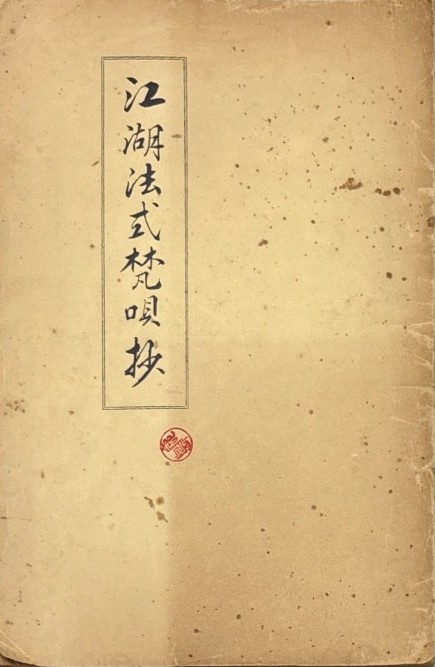 江湖法式梵唄抄